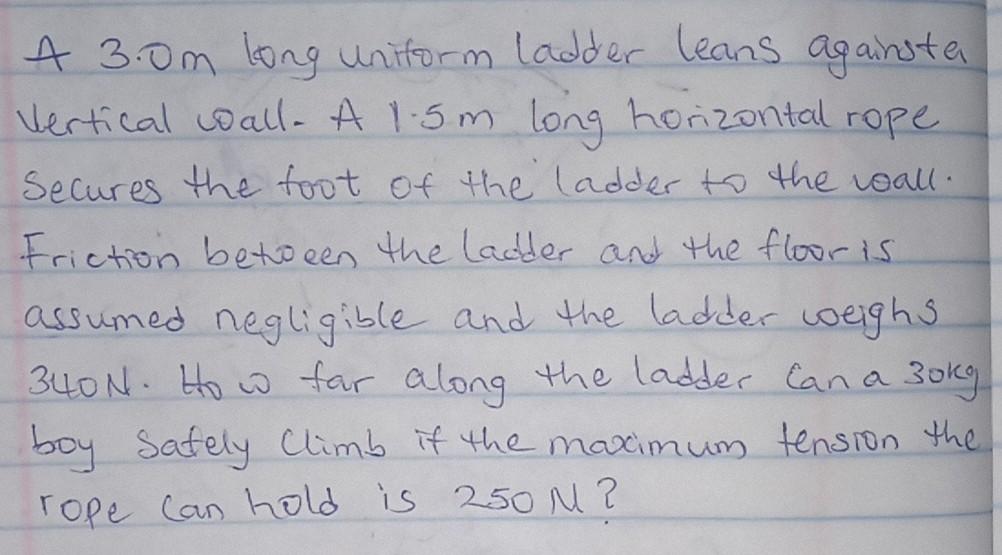 A 3.0m long uniform ladder leans against a
Vertical wall. A 1.5m long horizontal rope
Secures the foot of the ladder to the wall.
Friction between the ladder and the floor is
assumed negligible and the ladder weighs
340N. How far along the ladder Can a 30kg
boy Safely Climb if the maximum tension the
rope Can hold is 250N?